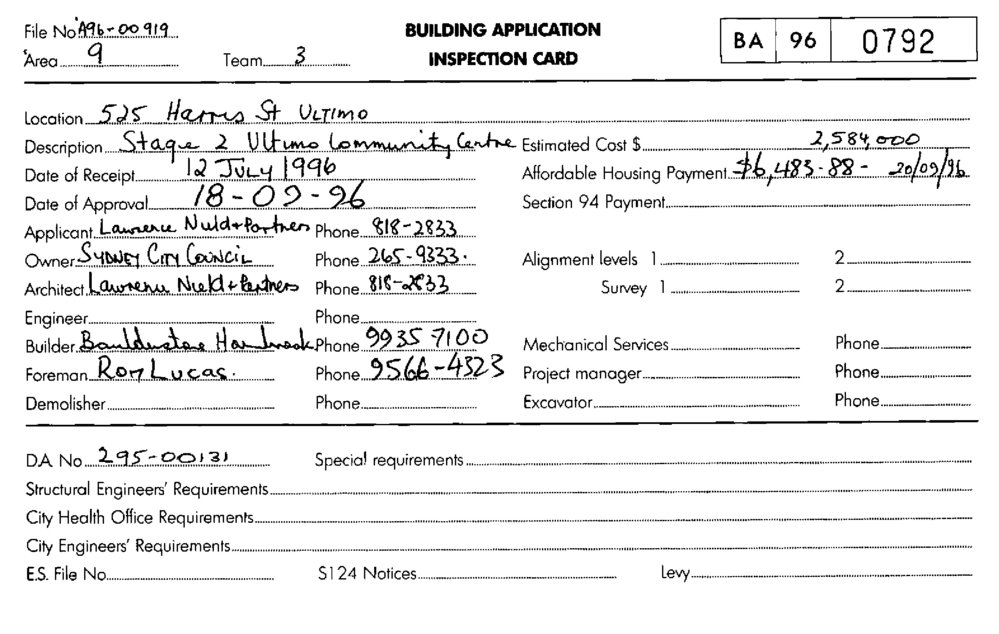 File No A96-00919 BUILDING APPLICATION BA 96 0792
Area 9 Team 3 INSPECTION CARD
Location 525 Harris St ULTIMO
Description Stage 2 Ultimo Community Centre Estimated Cost $ 2,584,000
Date of Receipt 12 JULY 1996 Affordable Housing Payment $6,483-88 - 20/09/96
Date of Approval 18-09-96 Section 94 Payment
Applicant Lawrence Nield + Partners Phone 818-2833
Owner SYDNEY CITY COUNCIL Phone 265-9333. Alignment levels 1 2
Architect Lawrence Nield + Partners Phone 818-2833 Survey 1 2
Engineer Phone
Builder Baulderstone Hornibrook Phone 9935 7100 Mechanical Services Phone
Foreman RON LUCAS. Phone 9566-4323 Project manager Phone
Demolisher Phone Excavator Phone
D.A. No 295-00131 Special requirements
Structural Engineers' Requirements
City Health Office Requirements
City Engineers' Requirements
E.S. File No S124 Notices Levy